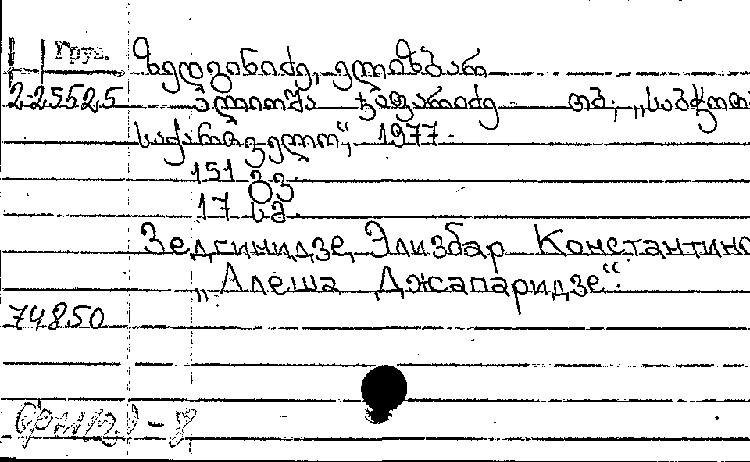 Груз. ზედგინიძე, ელიზბარ
2-25525 ალიოშა ჯაფარიძე თბ., „საბჭოთა
საქართველო“, 1977.
151 გვ.
17 სმ.
Зедгинидзе, Элизбар Константино
„Алеша Джапаридзе“.
74850